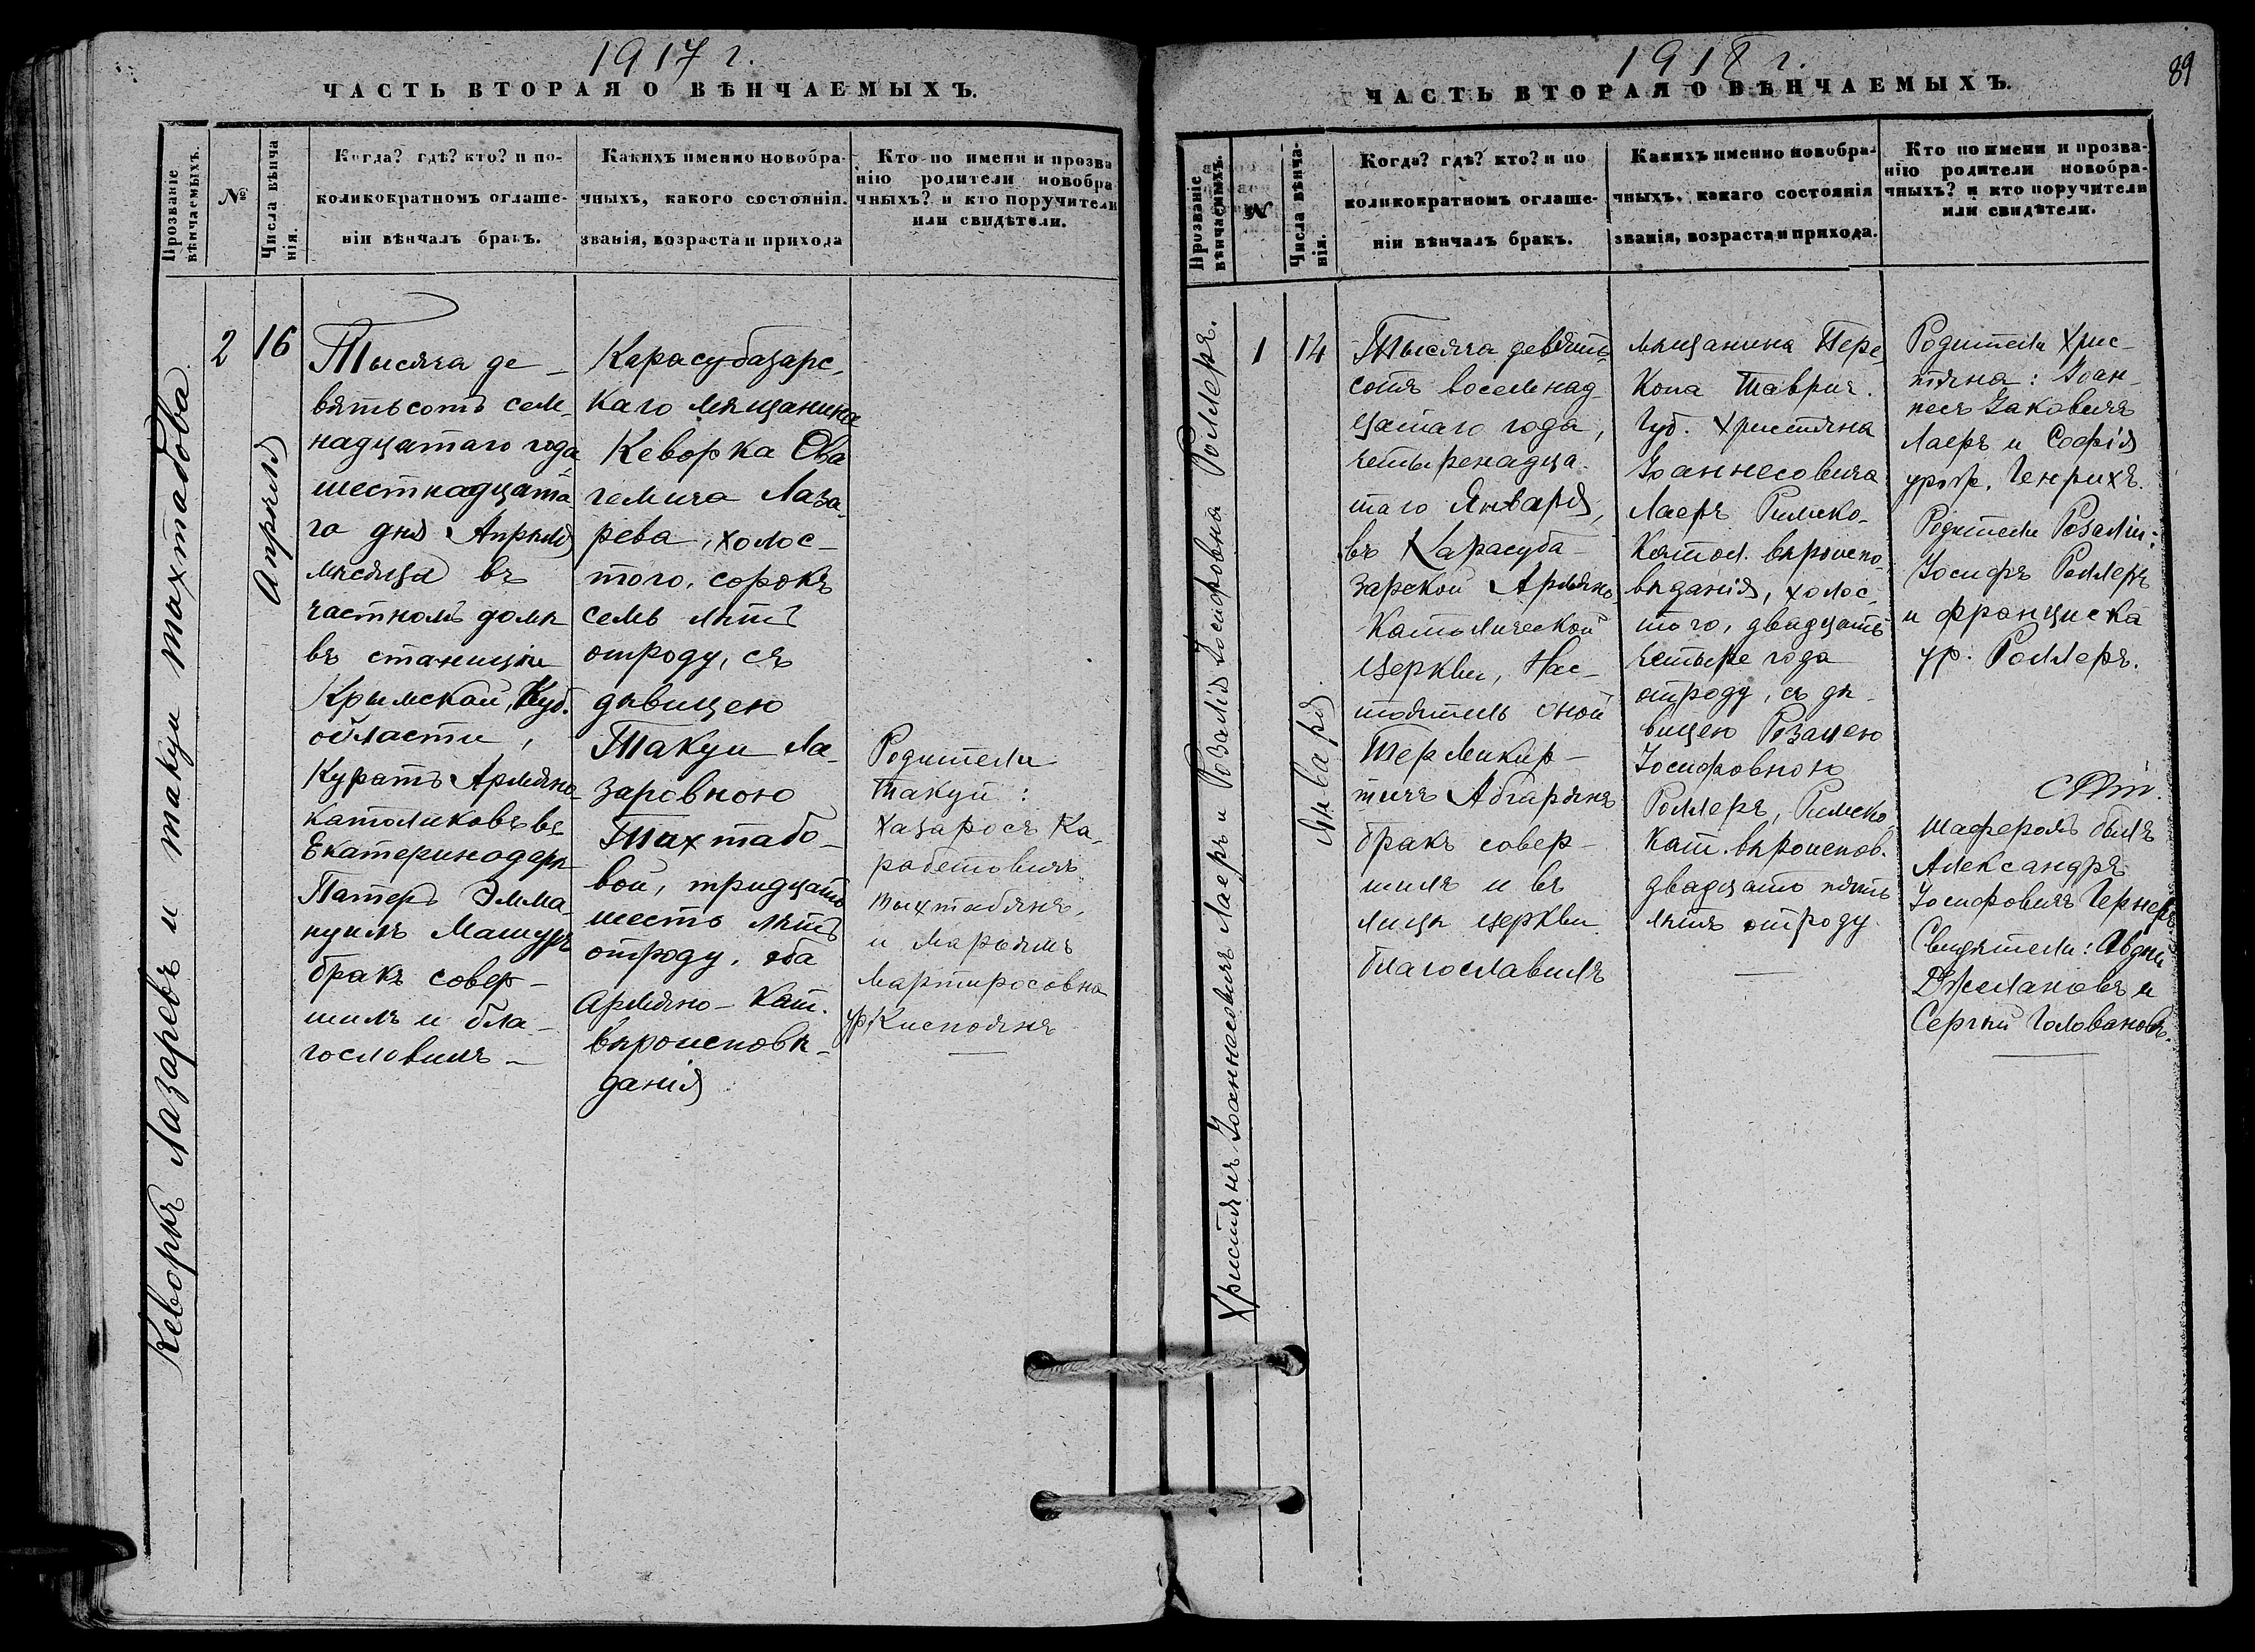 1917 г.
ЧАСТЬ ВТОРАЯ О ВѢНЧАЕМЫХЪ.
Прозваніе
вѣнчаемыхъ.
№
Числа вѣнча
нія.
Когда? гдѣ? кто? и по-
коликократномъ оглаше-
ніи вѣнчалъ бракъ.
Какихъ именно новобра-
чныхъ, какого состоянія.
званія, возраста и прихода
Кто по имени и прозва
нію родители новобра
чныхъ? и кто поручители
или свидѣтели.
Кеворкъ Лазаревъ и Такуи Тахтабова.
2
16
Апрѣля
Тысяча де-
вятьсотъ сем-
надцатаго года,
шестнадцата-
го дня Апрѣля
мѣсяца въ
частномъ домѣ
въ станицѣ
Крымской, Куб.
области,
Куратъ Армяно-
католиковъ въ
Екатеринодарѣ
Патеръ Эмма-
нуилъ
бракъ совер-
шилъ и бла-
гословилъ -
Карасубазарс-
каго мѣщанина
Кеворка
Лаза-
рева, холос-
того, сорокъ
семь лѣтъ
отроду, съ
дѣвицею
Такуи Ла-
заровною
Тахтабо-
вой, тридцать
шесть лѣтъ
отроду, оба
Армяно-Кат.
вѣроисповѣ-
данія
Родители
Такуи:
Хазаросъ Ка-
рабетовичъ
Тахтабянъ,
и Марьямъ
Мартиросовна
ур.
1918 г.
89
ЧАСТЬ ВТОРАЯ О ВѢНЧАЕМЫХЪ.
Прозваніе
вѣнчаемыхъ.
№
Числа вѣнча-
нія.
Когда? гдѣ? кто? и по
коликократномъ оглаше-
ніи вѣнчалъ бракъ.
Какихъ именно новобра-
чныхъ, какаго состоянія
званія, возраста и прихода.
Кто по имени и прозва-
нію родители новобра-
чныхъ? и кто поручители
или свидѣтели.
Христіянъ Іоаннесовичъ Лаеръ и Розалія Іосифовна Роллеръ.
1
14
Января.
Тысяча девять-
сотъ восемнад-
цатаго года,
четыренадца-
таго Января,
въ Карасуба-
зарской Армяно-
Католической
церкви, Нас-
тоятель оной
Тер Мкир-
тичъ Абгарянъ
бракъ совер-
шилъ и въ
лицѣ церкви
благославилъ
мѣщанина Пере-
копа Таврич.
Губ. Христіяна
Іоаннесовича
Лаеръ Римско-
Катол. вѣроиспо-
вѣданія, холос-
того, двадцать
четыре года
отроду, съ дѣ-
вицею Розалею
Іосифовною
Роллеръ, Римско-
Кат. вѣроисповѣ.
двадцать пять
лѣтъ отроду
Родители Хрис-
тіяна: Іоан-
несъ Яковичъ
Лаеръ и Софія
урож. Генрихъ.
Родители Розаліи:
Іосифъ Роллеръ
и Франциска
ур. Роллеръ.
Шаферомъ былъ
Александръ
Іосифовичъ Гернеръ
Свидѣтели: Авдѣй
Джелановъ и
Сергѣй Головановъ.